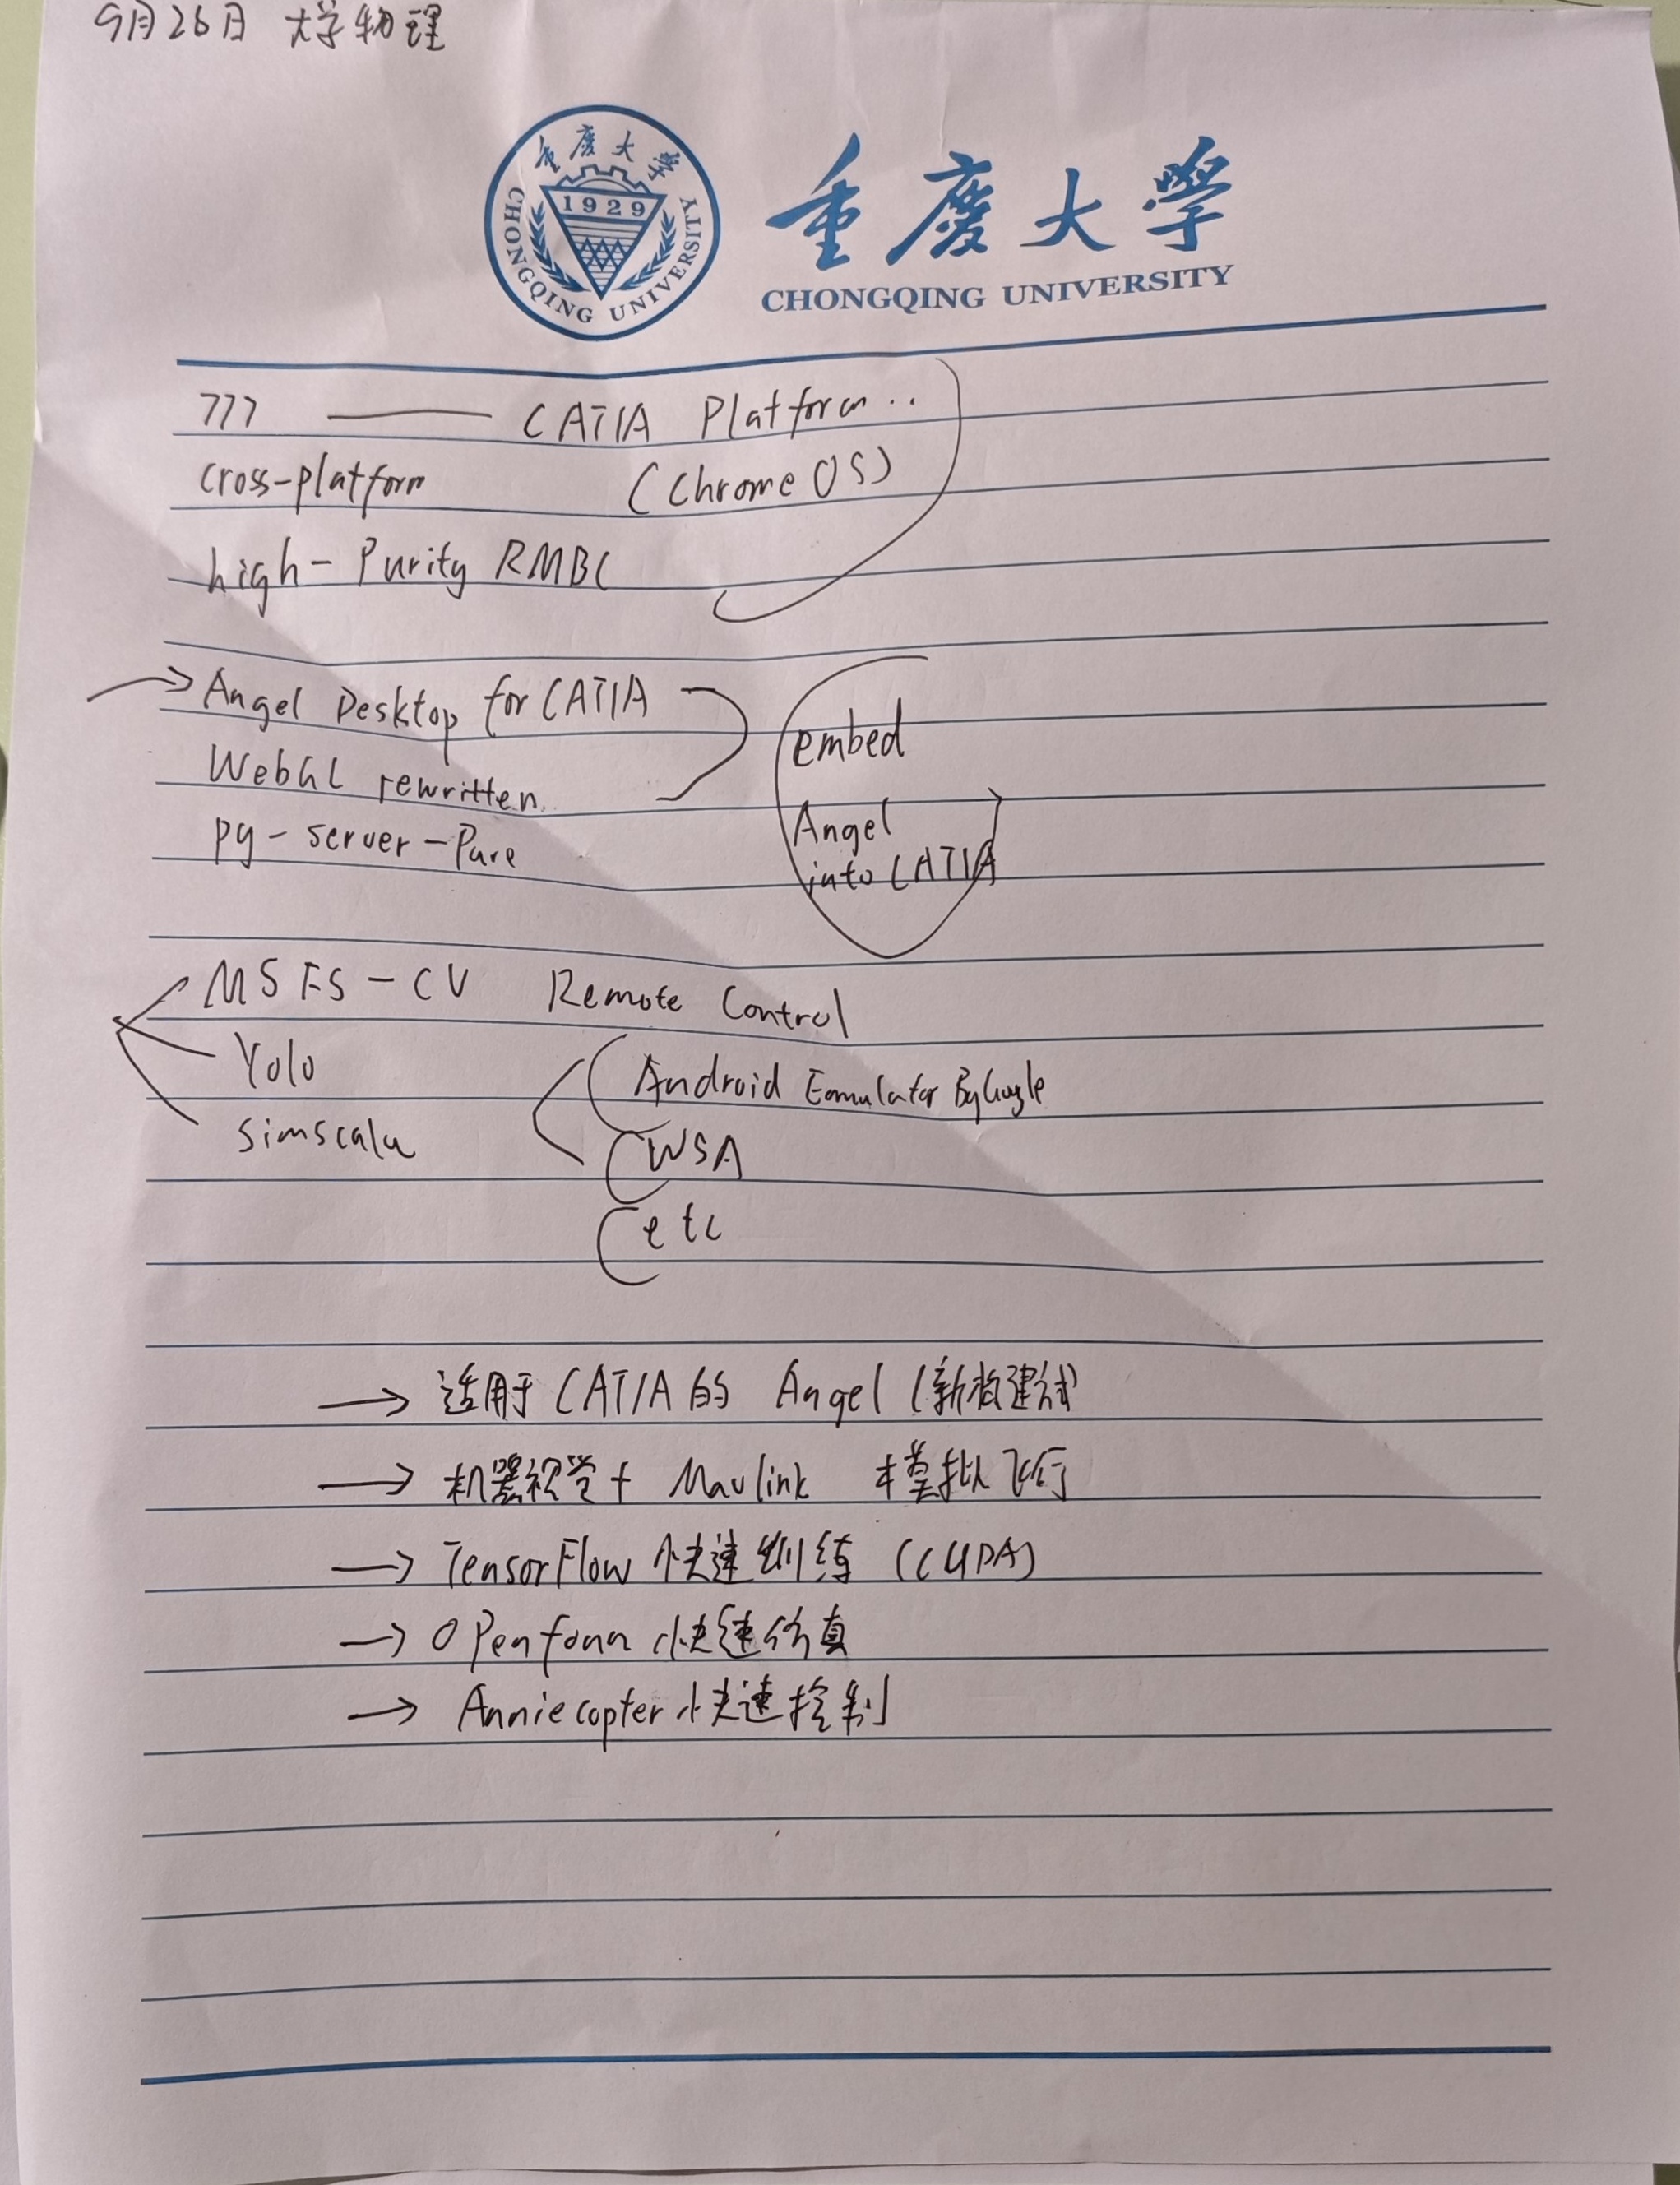 9月26日 大学物理
重庆大学
1929
CHONGQING UNIVERSITY
重慶大學
CHONGQING UNIVERSITY
777 —— CATIA Platform..
cross-platform (Chrome OS)
high-Purity RMBC
→ Angel Desktop for CATIA
WebGL rewritten
py-server-Pure
embed
Angel
into CATIA
MSFS-CV Remote Control
Yolo
Android Eomulator By Google
simscale
WSA
etc
→ 适用于CATIA的 Angel (新构建试)
→ 机器视觉+ Mavlink 模拟飞行
→ TensorFlow 快速训练 (CUDA)
→ OPenfoam 快速仿真
→ Anniecopter 快速控制